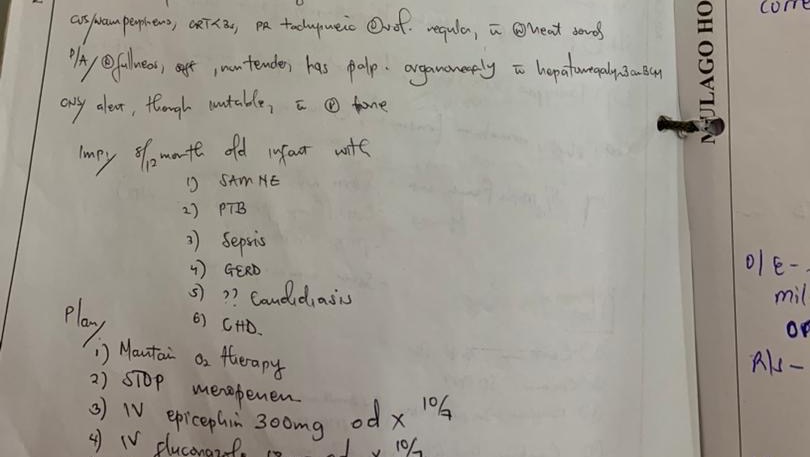 CVS/warm peripheries, CRT<3s, PR tachypneic Ⓝvol. regular, c̄ Ⓝheart sounds
P/A/ Ⓝfullness, soft, non tender, has palp. organomegaly c̄ hepatomegaly 3cm BCM
CNS/ alert, though irritable, c̄ Ⓝ tone
Imp/ 8/12 month old infant with
1) SAM NE
2) PTB
3) Sepsis
4) GERD
5) ?? Candidiasis
6) CHD.
Plan/
1) Maintain O2 therapy
2) STOP meropenem
3) IV epicephin 300mg od x 10/7
4) IV fluconazole od x 10/7
MULAGO HO
corre
O/E -
mil
op
R/S -